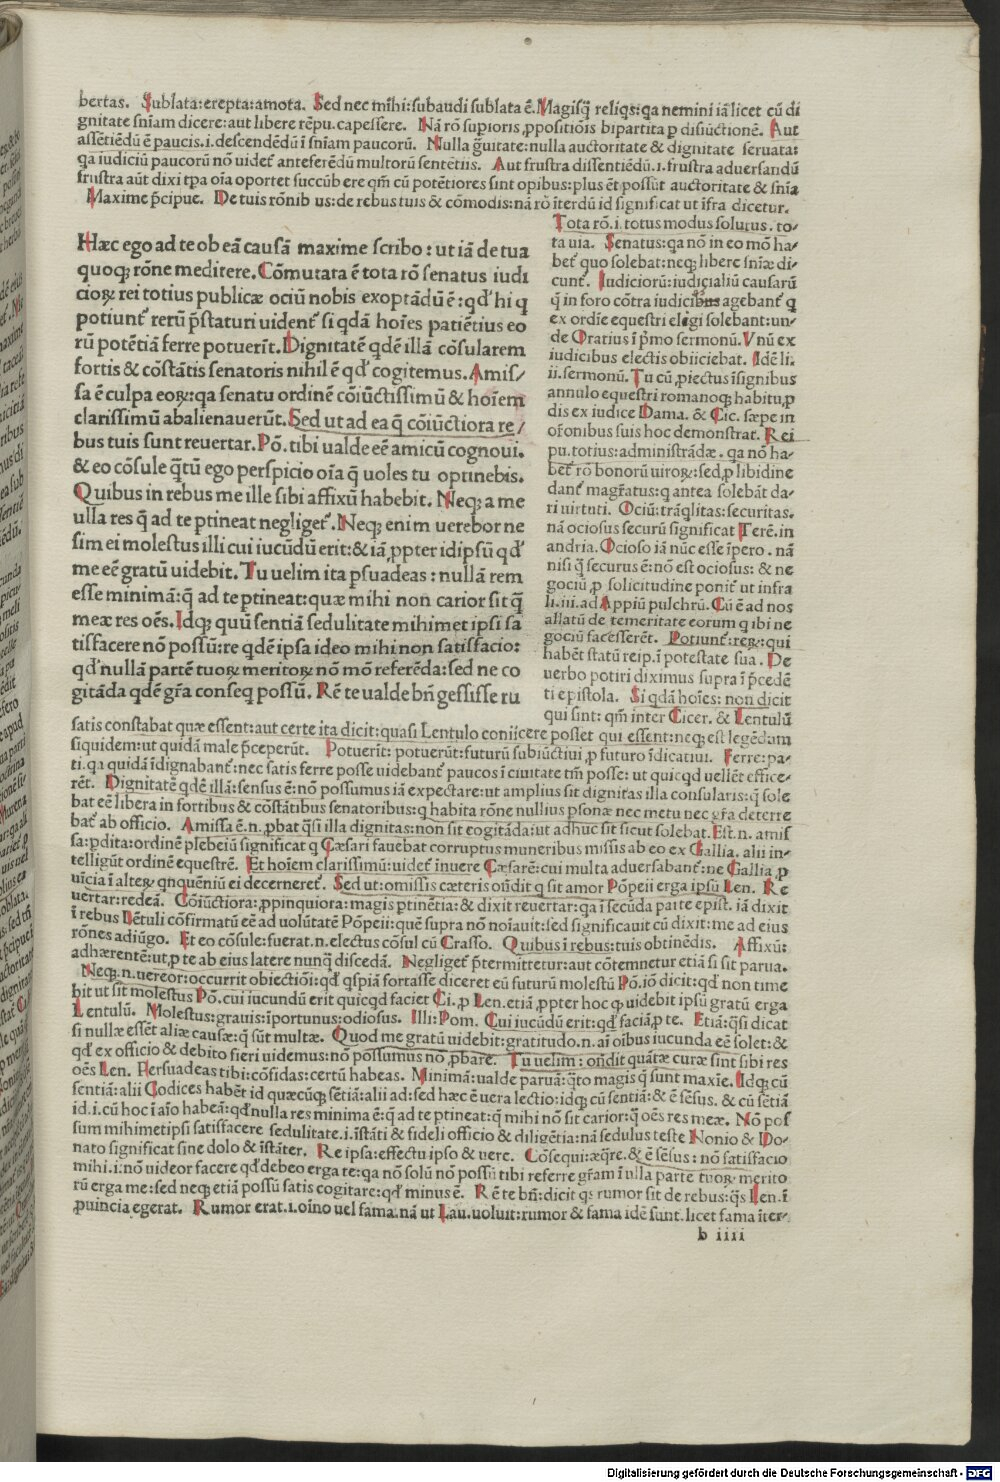 bertas. Sublata:erepta:amota. Sed nec mihi:subaudi sublata ē. Magisq̄ reliqs:qa nemini iā licet cū di
gnitate snīam dicere:aut libere rēpu. capessere. Nā rō supioris ꝓpositiōis bipartita p disiūctionē. Aut
assētiēdū ē paucis.i.descendēdū ī snīam paucorū. Nulla ḡuitate:nulla auctoritate & dignitate seruata:
qa iudiciū paucorū nō uidet̄ anteferēdū multorū sentētiis. Aut frustra dissentiēdū.i.frustra aduersandū
frustra aūt dixi tpa oīa oportet succūbere qm̄ cū potētiores sint opibus:plus ēt possūt auctoritate & snīa
Maxime p̄cipue. De tuis rōnibus:de rebus tuis & cōmodis:nā rō īterdū id significat ut īfra dicetur.
Hæc ego ad te ob eā causā maxime scribo:ut iā de tua
quoqꝫ rōne meditere. Cōmutata ē tota rō senatus iudi
cioꝝ rei totius publicæ ociū nobis exoptādū ē:qd̄ hi q
potiunt̄ rerū p̄staturi uident̄ si qdā hoīes patiētius eo
rū potētiā ferre potuerīt. Dignitatē qdē illā cōsularem
fortis & cōstātis senatoris nihil ē qd̄ cogitemus. Amis/
sa ē culpa eoꝝ:qa senatu ordinē cōiūctissimū & hoīem
clarissimū abalienauerūt. Sed ut ad ea q̄ cōiūctiora re/
bus tuis sunt reuertar. Pō. tibi ualde eē amicū cognoui.
& eo cōsule q̄tū ego perspicio oīa q̄ uoles tu optinebis.
Quibus in rebus me ille sibi affixū habebit. Neqꝫ a me
ulla res q̄ ad te ptineat negliget̄. Neqꝫ enim uerebor ne
sim ei molestus illi cui iucūdū erit:& iā ꝓpter id ipsū qd̄
me eē gratū uidebit. Tu uelim ita psuadeas: nullā rem
esse minimā:q̄ ad te ptineat:quæ mihi non carior sit q̄
meæ res oēs. Idqꝫ quū sentiā sedulitate mihimet ipsi sa
tisfacere nō possū:re qdē ipsa ideo mihi non satisfacio:
qd̄ nullā partē tuoꝝ meritoꝝ nō mō referēda:sed ne co
gitāda qdē gr̄a conseq possū. Rē te ualde bn̄ gessisse ru
Tota rō.i.totus modus solutus. to-
ta uia. Senatus:qa nō in eo mō ha-
bet̄ quo solebat:neqꝫ libere snīæ di-
cunt̄. Iudiciorū:iudicialiū causarū
q̄ in foro cōtra iudicibus agebant̄ q
ex ordīe equestri eligi solebant:un-
de Oratius ī p̄mo sermonū. Vnū ex
iudicibus electis obiiciebat. Idē li.
ii.sermonū. Tu cū ꝓiectus īsignibus
annulo equestri romanoqꝫ habitu,p
dis ex iudice Dama. & Cic. sæpe in
or̄onibus suis hoc demonstrat. Rei
pu.totius:administrādæ. qa nō ha-
bet̄ rō bonorū uiroꝝ:sed ꝓ libidine
dant̄ magr̄atus:q antea solebāt da-
ri uirtuti. Ociū:trāq̄litas:securitas.
nā ociosus securū significat Terē.in
andria. Ocioso iā nūc esse īpero. nā
nisi q̄ securus ē:nō est ociosus:& ne
gociū ꝓ solicitudine ponit̄ ut infra
li.iii.ad Appiū pulchrū. Cū ē ad nos
allatū de temeritate eorum q ibi ne
gociū facesserēt. Potiunt̄:reꝝ:qui
habēt statū reip.ī potestate sua. De
uerbo potiri diximus supra ī p̄cedē
ti epistola. Si qdā hoīes: non dicit
qui sint: qm̄ inter Cicer. & Lentulū
satis constabat quæ essent:aut certe ita dicit:quasi Lentulo coniicere posset qui essent:neqꝫ est legēdum
siquidem:ut quidā male p̄ceperūt. Potuerīt: potuerūt:futurū subiūctiui ꝓ futuro īdicatiui. Ferre:pa-
ti.qa quidā īdignabant̄:nec satis ferre posse uidebant̄ paucos ī ciuitate tm̄ posse: ut quicqd uellēt effice-
rēt. Dignitatē qdē illā:sensus ē:nō possumus iā expectare:ut amplius sit dignitas illa consularis:q̄ sole
bat eē libera in fortibus & cōstātibus senatoribus:q habita rōne nullius psonæ nec metu nec gr̄a deterre
bat̄ ab officio. Amissa ē.n.ꝓbat q̄si illa dignitas:non sit cogitāda:ut adhuc sit sicut solebat. Est.n. amis
sa:pdita:ordinē plebeiū significat q Cæsari fauebat corruptus muneribus missis ab eo ex Gallia. alii in-
telligūt ordinē equestrē. Et hoiem clarissimū:uidet̄ īnuere Cæsarē:cui multa aduersabant̄:ne Gallia ꝓ
uīcia ī alteꝝ qnquēniū ei decerneret̄. Sed ut:omissis cæteris on̄dit q sit amor Pōpeii erga ipsū Len. Re
uertar:redeā. Cōiūctiora:ꝓpinquiora:magis ptinētia:& dixit reuertar:qa ī secūda parte epist. iā dixit
ī rebus Lētuli cōfirmatū eē ad uolūtatē Pōpeii:quē supra nō noīauit:sed significauit cū dixit:me ad eius
rōnes adiūgo. Et eo cōsule:fuerat.n.electus cōsul cū Crasso. Quibus ī rebus:tuis obtinēdis. Affixū:
adhærentē:ut,p te ab eius latere nunq̄ discedā. Negliget̄ p̄termittetur:aut cōtemnetur etiā si sit parua.
Neqꝫ.n.uereor:occurrit obiectiōi:qd̄ q̄spiā fortasse diceret eū futurū molestū Pō.iō dicit:qd̄ non time
bit ut sit molestus Pō.cui iucundū erit quicqd faciet Ci.ꝓ Len.etiā ꝓpter hoc q uidebit ipsū gratū erga
Lentulū. Molestus:grauis:īportunus:odiosus. Illi:Pom. Cui iucūdū erit:qd̄ faciā ꝓ te. Etiā:q̄si dicat
si nullæ essēt aliæ causæ:q̄ sūt multæ. Quod me gratū uidebit:gratitudo.n.aī oibus iucunda eē solet:&
qd̄ ex officio & debito fieri uidemus:nō possumus nō ꝓbare. Tu uelim: on̄dit quātæ curæ sint sibi res
oēs Len. Persuadeas tibi:cōfidas:certū habeas. Minimā:ualde paruā:q̄to magis q̄ sunt maxīe. Idqꝫ cū
sentiā:alii Codices habēt id quæcūqꝫ sētiā:alii ad:sed hæc ē uera lectio:idqꝫ cū sentiā:& ē sēsus. & cū sētiā
id.i.cū hoc ī aīo habeā:qd̄ nulla res minima ē:q̄ ad te ptineat:q̄ mihi nō sit carior:q̄ oēs res meæ. Nō pos
sum mihimetipsi satisfacere sedulitate.i.īstāti & fideli officio & diligētia:nā sedulus teste Nonio & Do-
nato significat sine dolo & īstāter. Re ipsa:effectu ipso & uere. Cōsequi:æqre.& ē sēsus: nō satisfacio
mihi.i.nō uideor facere qd̄ debeo erga te:qa nō solū nō possū tibi referre gr̄am ī ulla parte tuoꝝ merito
rū erga me:sed neqꝫ etiā possū satis cogitare:qd̄ minus ē. Rē te bn̄:dicit qs rumor sit de rebus:q̄s Len.ī
ꝓuincia egerat. Rumor erat.i.oīno uel fama.nā ut Lau.uoluit:rumor & fama idē sunt.licet fama īter-
b iiii
Digitalisierung gefördert durch die Deutsche Forschungsgemeinschaft - DFG